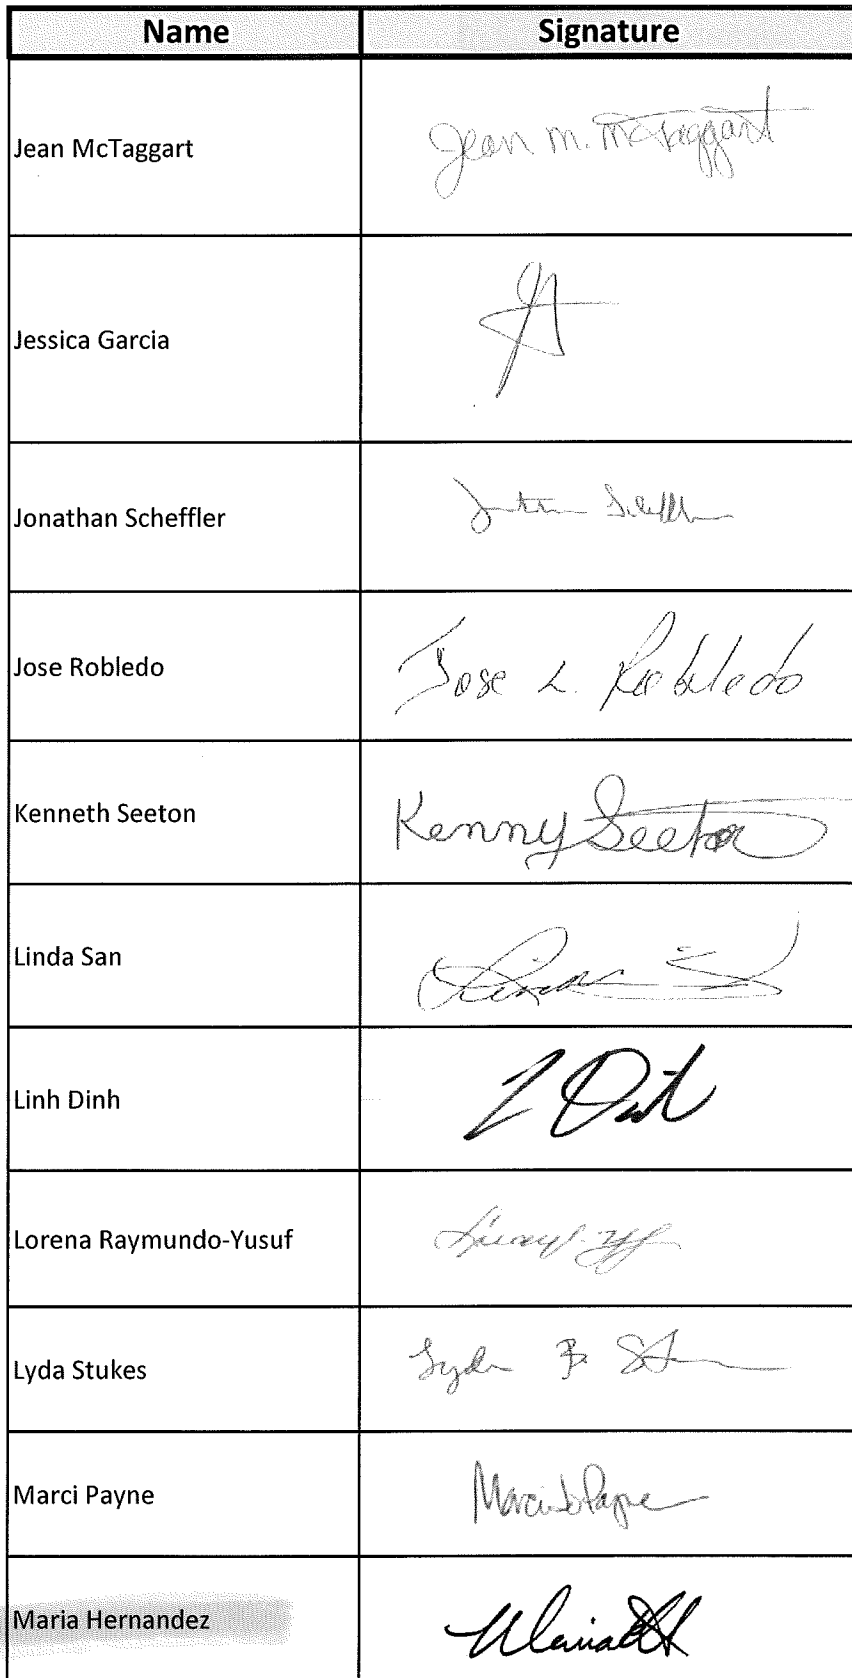 Name Signature
Jean McTaggart Jean M. McTaggart
Jessica Garcia
Jonathan Scheffler
Jose Robledo Jose L. Robledo
Kenneth Seeton Kenny Seeton
Linda San
Linh Dinh L Dinh
Lorena Raymundo-Yusuf
Lyda Stukes Lyda B. St
Marci Payne Marci Payne
Maria Hernandez Maria H